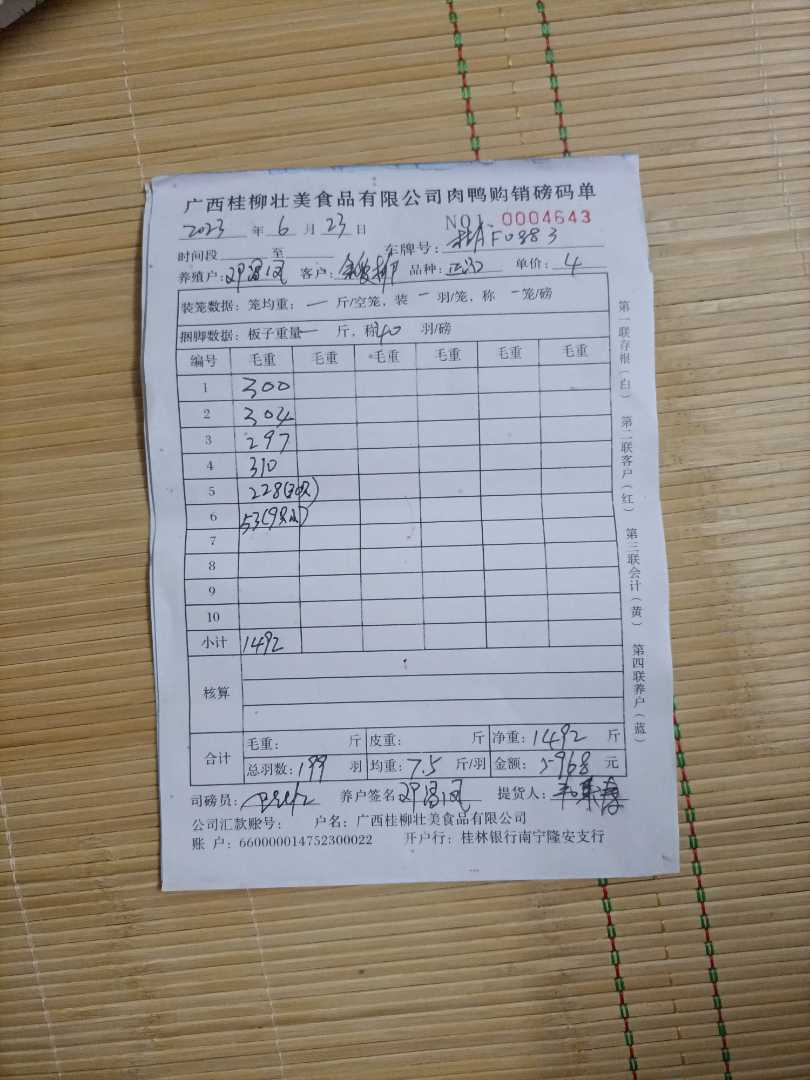 广西桂柳壮美食品有限公司肉鸭购销磅码单
2023 年 6 月 23 日 NO1. 0004643
时间段 至 车牌号: F0883
养殖户: 邓 客户: 品种: 单价: 4
装笼数据: 笼均重: 一 斤/空笼, 装 一 羽/笼, 称 一 笼/磅
捆脚数据: 板子重量 一 斤, 称 40 羽/磅
编号 毛重 毛重 毛重 毛重 毛重 毛重
1 300
2 304
3 297
4 310
5 228(30只)
6 53(9只)
7
8
9
10
小计 1492
核算
合计 毛重: 斤 皮重: 斤 净重: 1492 斤
总羽数: 199 羽 均重: 7.5 斤/羽 金额: 5968 元
司磅员: 养户签名 邓 提货人:
公司汇款账号: 户名: 广西桂柳壮美食品有限公司
账 户: 660000014752300022 开户行: 桂林银行南宁隆安支行
第一联存根(白) 第二联客户(红) 第三联会计(黄) 第四联养户(蓝)